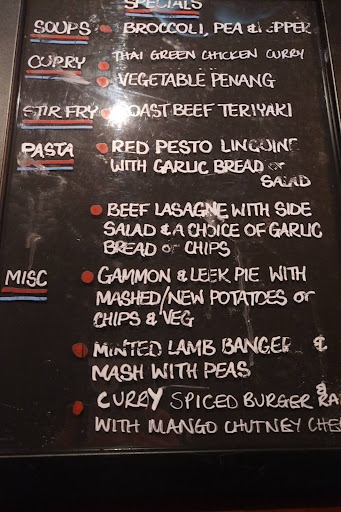 SPECIALS
SOUPS BROCCOLI, PEA &
CURRY THAI GREEN CHICKEN CURRY
VEGETABLE PENANG
STIR FRY ROAST BEEF TERIYAKI
PASTA RED PESTO LINGUINE
WITH GARLIC BREAD or
SALAD
BEEF LASAGNE WITH SIDE
SALAD & A CHOICE OF GARLIC
BREAD or CHIPS
MISC GAMMON & LEEK PIE WITH
MASHED/NEW POTATOES or
CHIPS & VEG
MINTED LAMB BANGER &
MASH WITH PEAS
CURRY SPICED BURGER &
WITH MANGO CHUTNEY